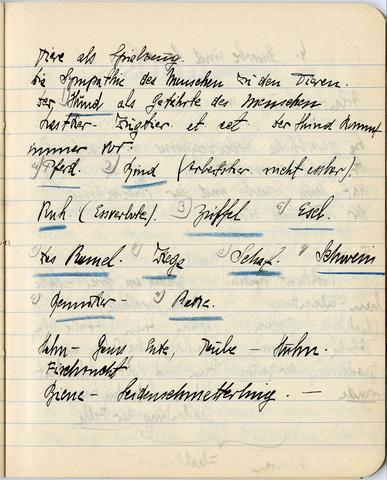 Tiere als Spielzeug.
Die Sympathie des Menschen zu den Tieren.
Der Hund als Gefährte des Menschen
Lasttier- Zugtier et cet der Hund kommt
immer vor.
Pferd. 2) Rind (Arbeitstier nicht essbar).
Kuh. (Essverbote). 3) Büffel 8) Esel.
Das Kamel. Ziege Schaf. Schwein
Katze.
Hahn - Gans Ente, Taube - Huhn.
Fischzucht
Biene - Seidenschmetterling. —